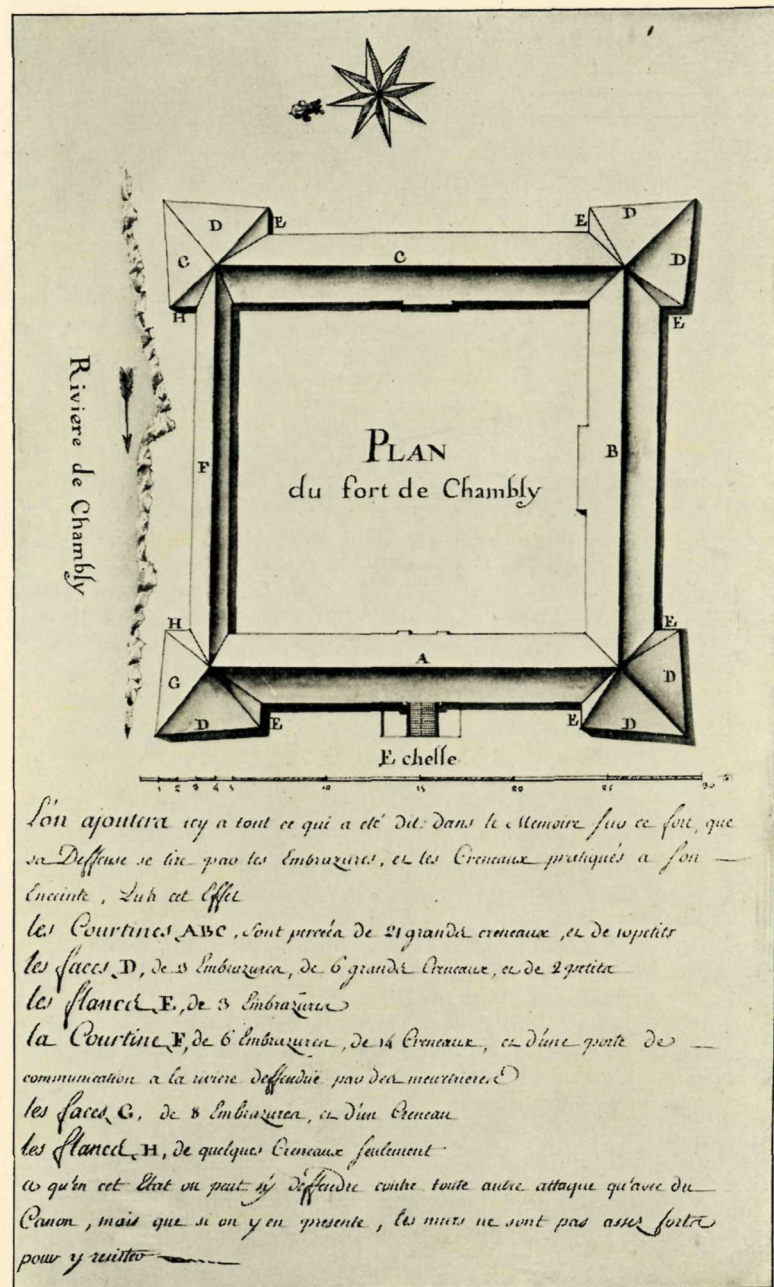 D
E
E
D
C
C
D
H
E
Riviere de Chambly
PLAN
du fort de Chambly
F
B
H
E
G
A
D
D
E
E
D
Echelle
1 2 3 4 5 10 15 20 25 30
L'on ajoutera icy a tout ce qui a eté dit dans le Memoire sur ce fort, que
sa Deffense se tire par les Embrazures, et les Creneaux pratiqués a son
Enceinte, cet Effet
les Courtines ABC, sont percées de 21 grands creneaux, et de 10 petits
les faces D, de Embrazures, de 6 grands Creneaux, et de 2 petits
les flancs E, de 3 Embrazures
la Courtine F, de 6 Embrazures, de 14 Creneaux, et d'une porte de
communication a la riviere deffendue par des meurtrieres
les faces G, de 8 Embrazures, et d'un Creneau
les flancs H, de quelques Creneaux seulement
qu'en cet Etat on peut s'y deffendre contre toute autre attaque qu'avec du
Canon, mais que si on y en presente, les murs ne sont pas assez forts
pour y resister